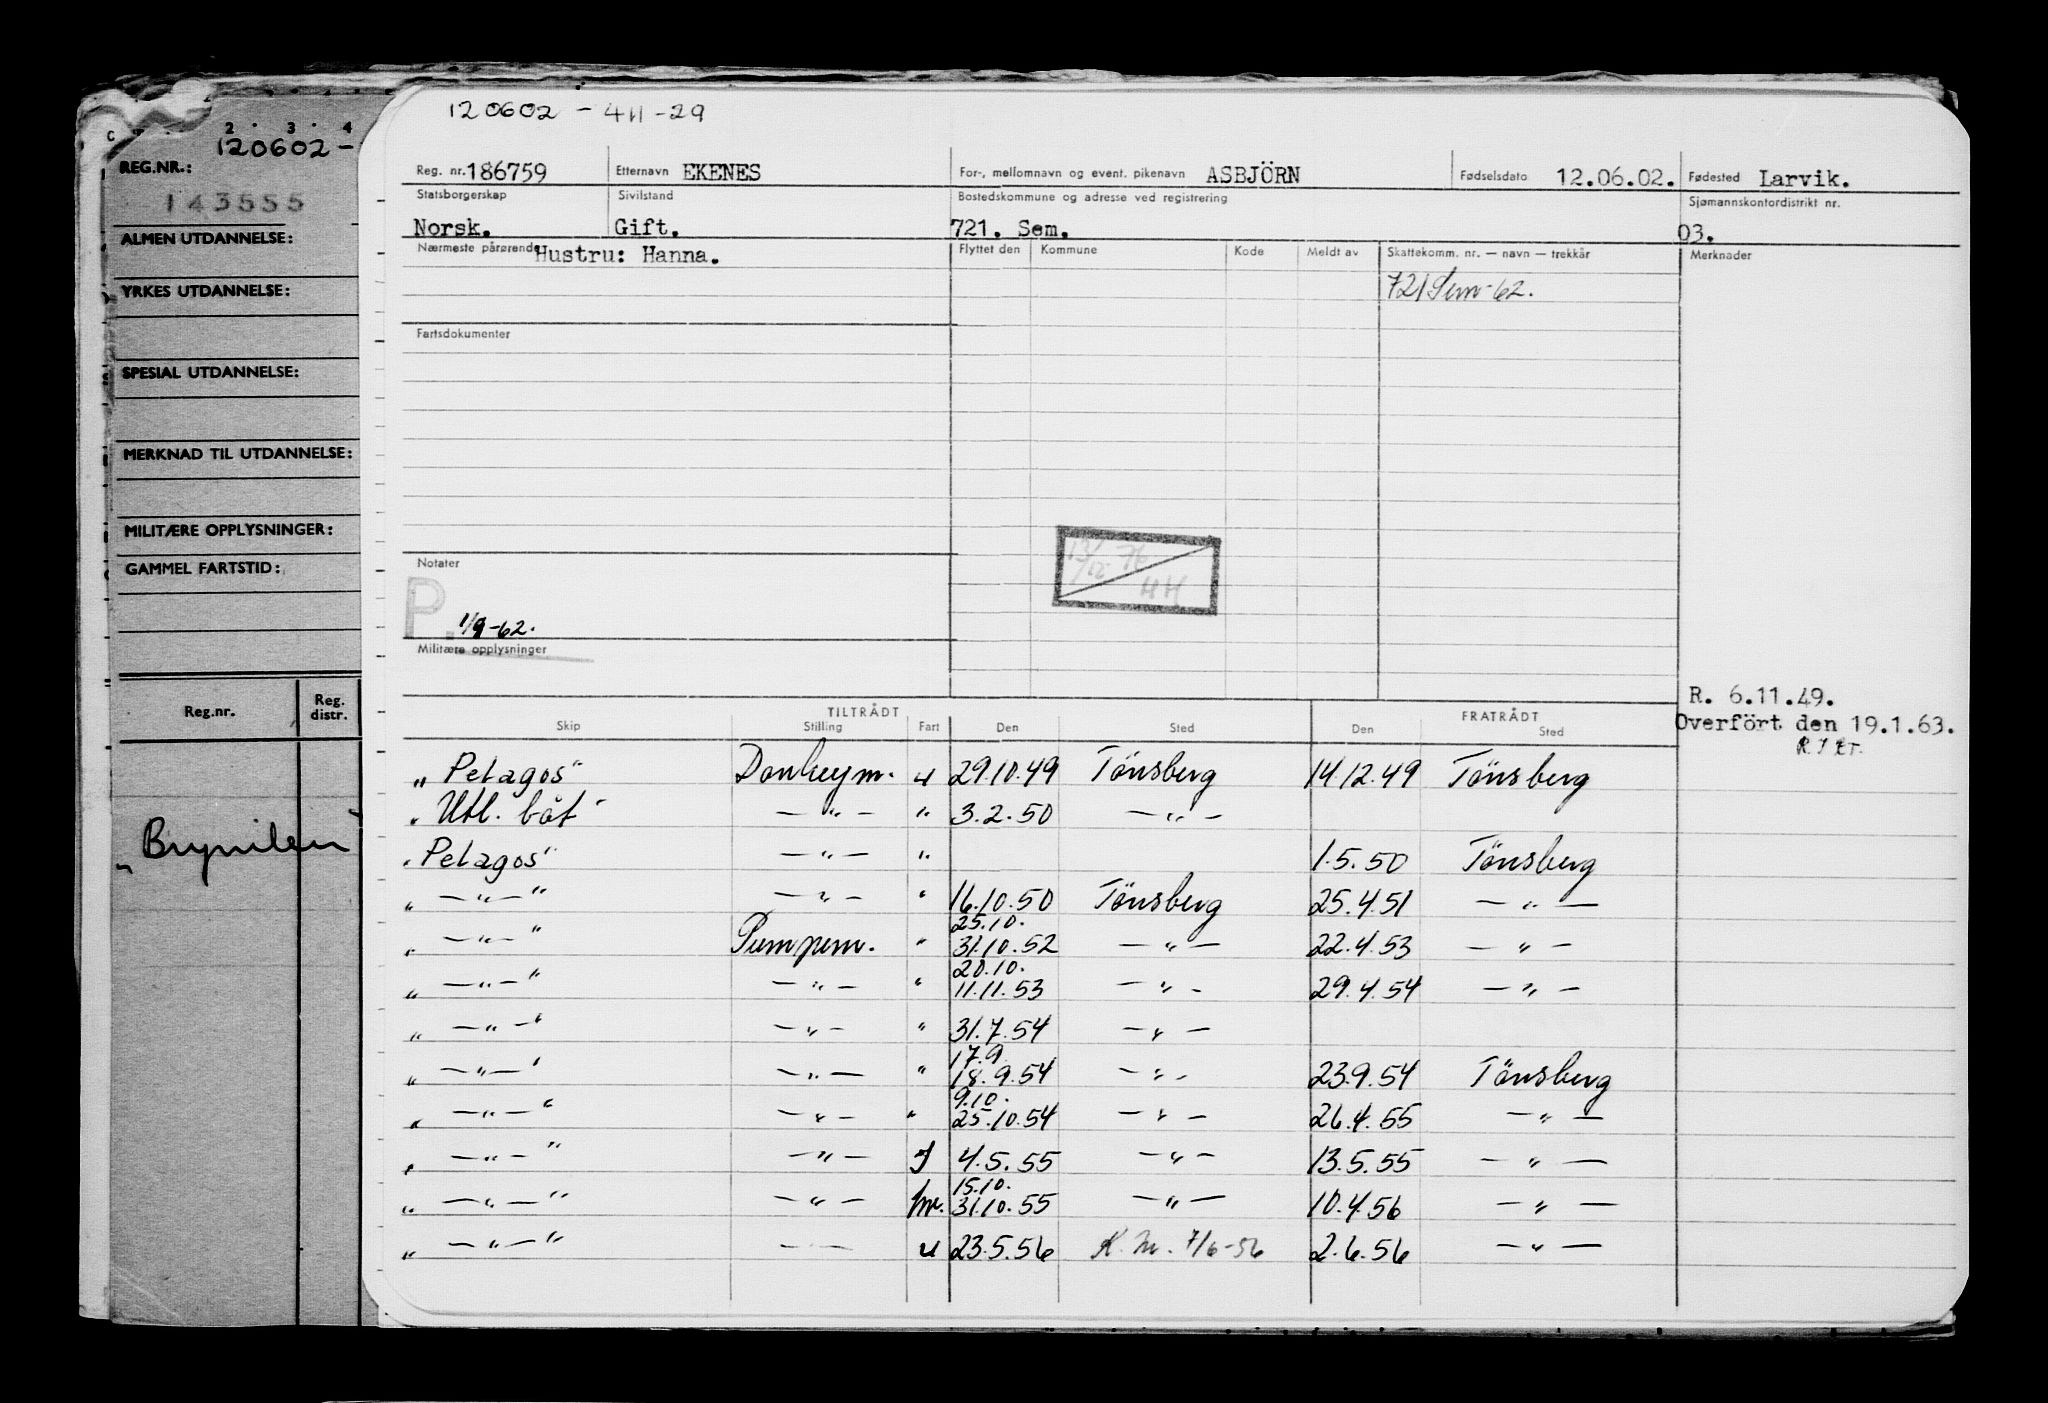 120602 - 411-29
C 2 · 3 · 4
120602-
REG.NR.:
143555
ALMEN UTDANNELSE:
YRKES UTDANNELSE:
SPESIAL UTDANNELSE:
MERKNAD TIL UTDANNELSE:
MILITÆRE OPPLYSNINGER:
GAMMEL FARTSTID:
Reg.nr. Reg. distr.
Reg. nr. 186759 Etternavn EKENES For-, mellomnavn og event. pikenavn ASBJÖRN Fødselsdato 12.06.02. Fødested Larvik.
Statsborgerskap Sivilstand Bostedskommune og adresse ved registrering Sjømannskontordistrikt nr.
Norsk. Gift. 721. Sem. 03.
Nærmeste pårørende Hustru: Hanna. Flyttet den Kommune Kode Meldt av Skattekomm. nr. — navn — trekkår Merknader
721 Sem-62.
Fartsdokumenter
13/12 76
HH
Notater
P. 1/9-62.
Militære opplysninger
R. 6.11.49.
Overfört den 19.1.63.
TILTRÅDT FRATRÅDT
Skip Stilling Fart Den Sted Den Sted
„Pelagos" Donkeym. u 29.10.49 Tönsberg 14.12.49 Tönsberg
„Utl. båt" —"— " 3.2.50 —"—
„Pelagos" —"— " 1.5.50 Tönsberg
„—"—" —"— " 16.10.50 Tönsberg 25.4.51 —"—
25.10.
„—"—" Pumpem. " 31.10.52 —"— 22.4.53 —"—
20.10.
„—"—" —"— " 11.11.53 —"— 29.4.54 —"—
„—"—" —"— " 31.7.54 —"—
17.9
„—"—" —"— " 18.9.54 —"— 23.9.54 Tönsberg
9.10.
„—"—" —"— " 25.10.54 —"— 26.4.55 —"—
„—"—" —"— 4.5.55 —"— 13.5.55 —"—
15.10.
„—"—" —"— 31.10.55 —"— 10.4.56 —"—
„—"—" —"— u 23.5.56 K.M. 7/6-56 2.6.56 —"—